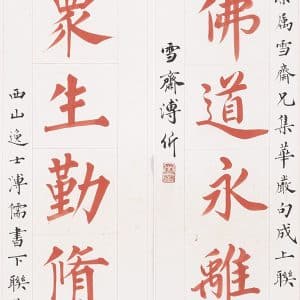 屬雪齋兄集華嚴句成上聯
佛道永離
雪齋溥伒
眾生勤脩
西山逸士溥儒書下聯